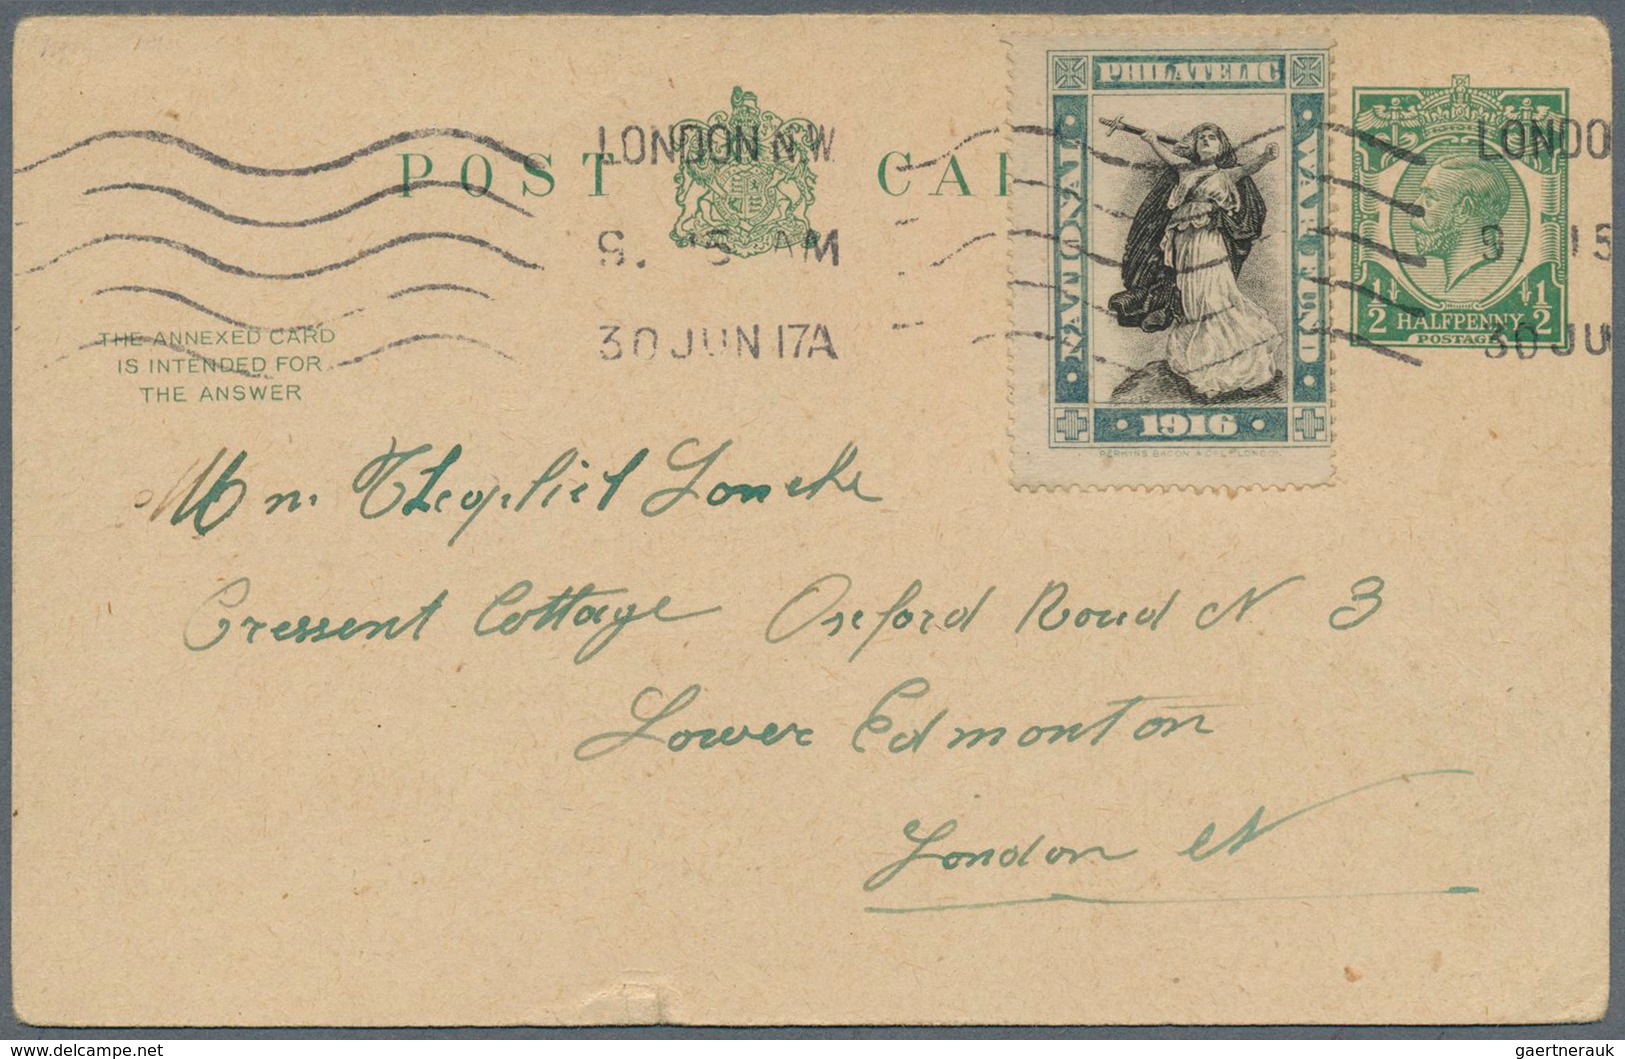 POST CAR
LONDON N.W.
9. 15 AM
30 JUN 17A
THE ANNEXED CARD
IS INTENDED FOR
THE ANSWER
PHILATELIC
NATIONAL
WAR FUND
· 1916 ·
PERKINS BACON & CO LD LONDON
½ HALFPENNY ½
POSTAGE
LONDO
9. 15
30 JU
Theophiel Loncke
Cressent Cottage Oxford Road N 3
Lower Edmonton
London N
delcampe.net
gaertnerauk